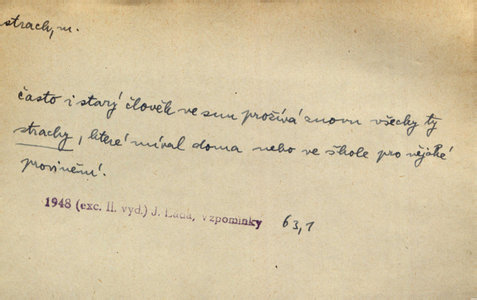 strach, m.
často i starý člověk ve snu prožívá znovu všecky ty
strachy, které míval doma nebo ve škole pro nějaké
provinění.
1948 (exc. II. vyd.) J. Lada, Vzpomínky 63,1